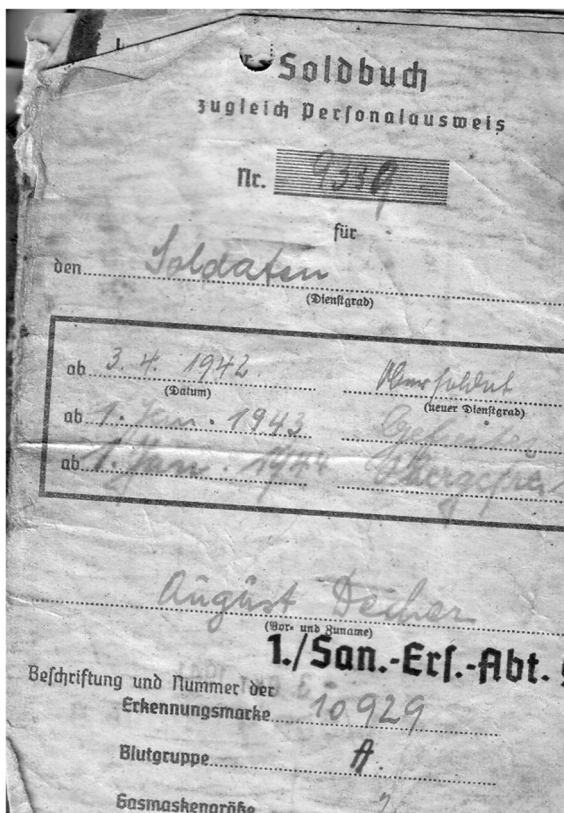 Soldbuch
zugleich Personalausweis
Nr. 9339
für
den Soldaten
(Dienstgrad)
ab 3. 4. 1942. Obersoldat
(Datum) (neuer Dienstgrad)
ab 1. Jan. 1943 Gefreiter
ab 1. Jan. 1944
August
(Vor- und Zuname)
1./San.-Ers.-Abt.
Beschriftung und Nummer der
Erkennungsmarke 10929
Blutgruppe A.
Gasmaskengröße